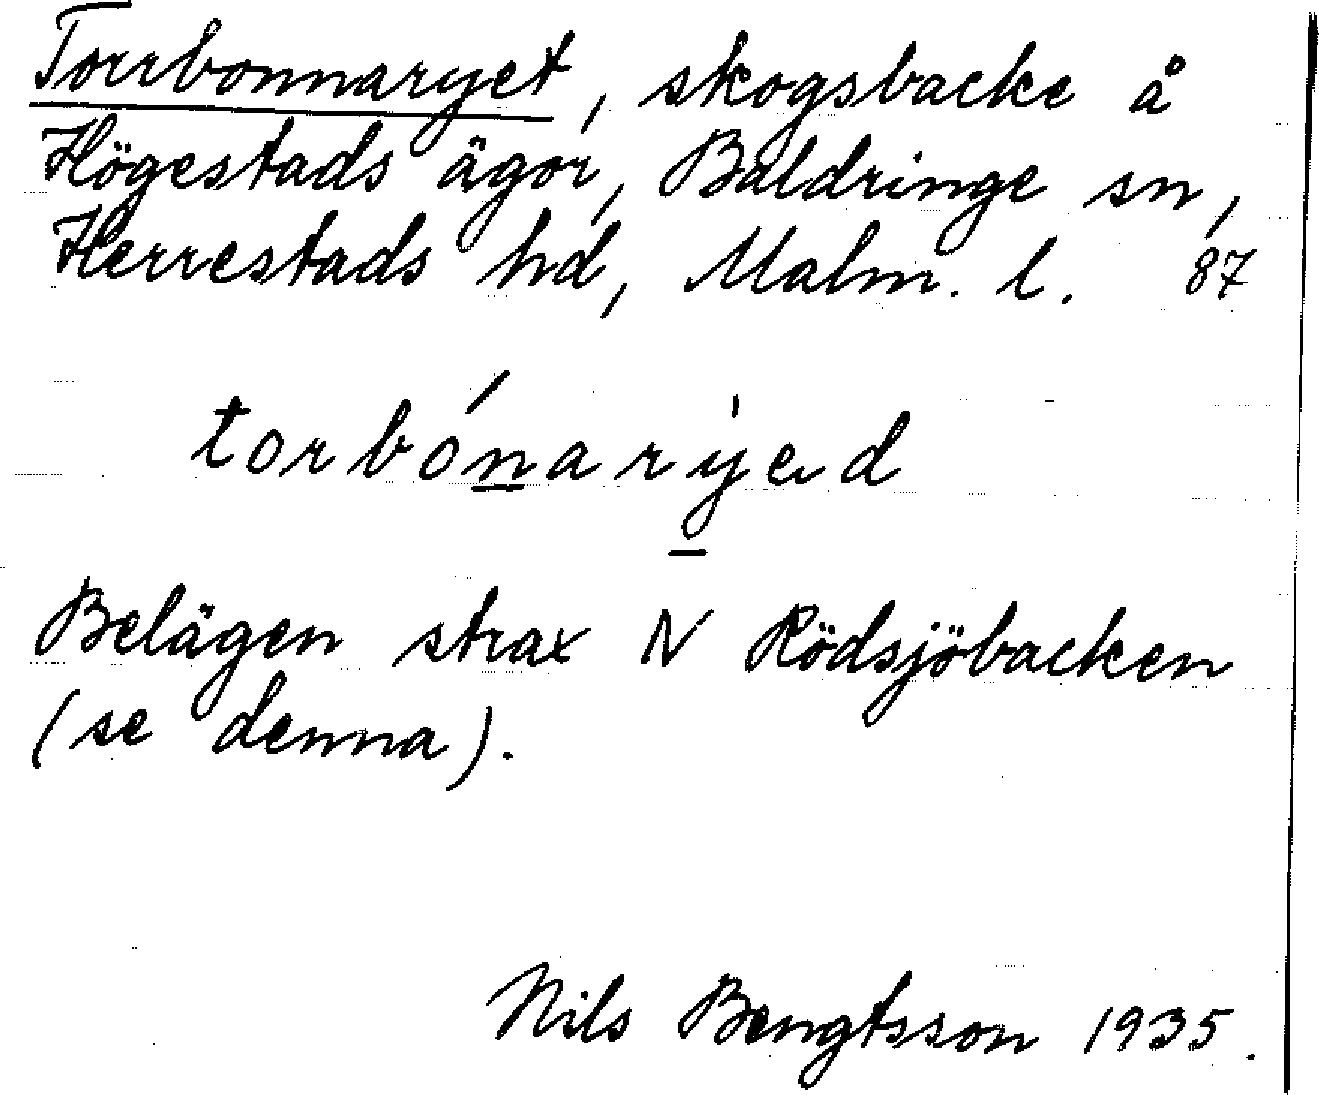 Torrbonnaryet, skogsbacke å
Högestads ägor, Baldringe sn,
Herrestads hd, Malm. l. 87
torbónarýed
Belägen strax N Rödsjöbacken
(se denna).
Nils Bengtsson 1935.